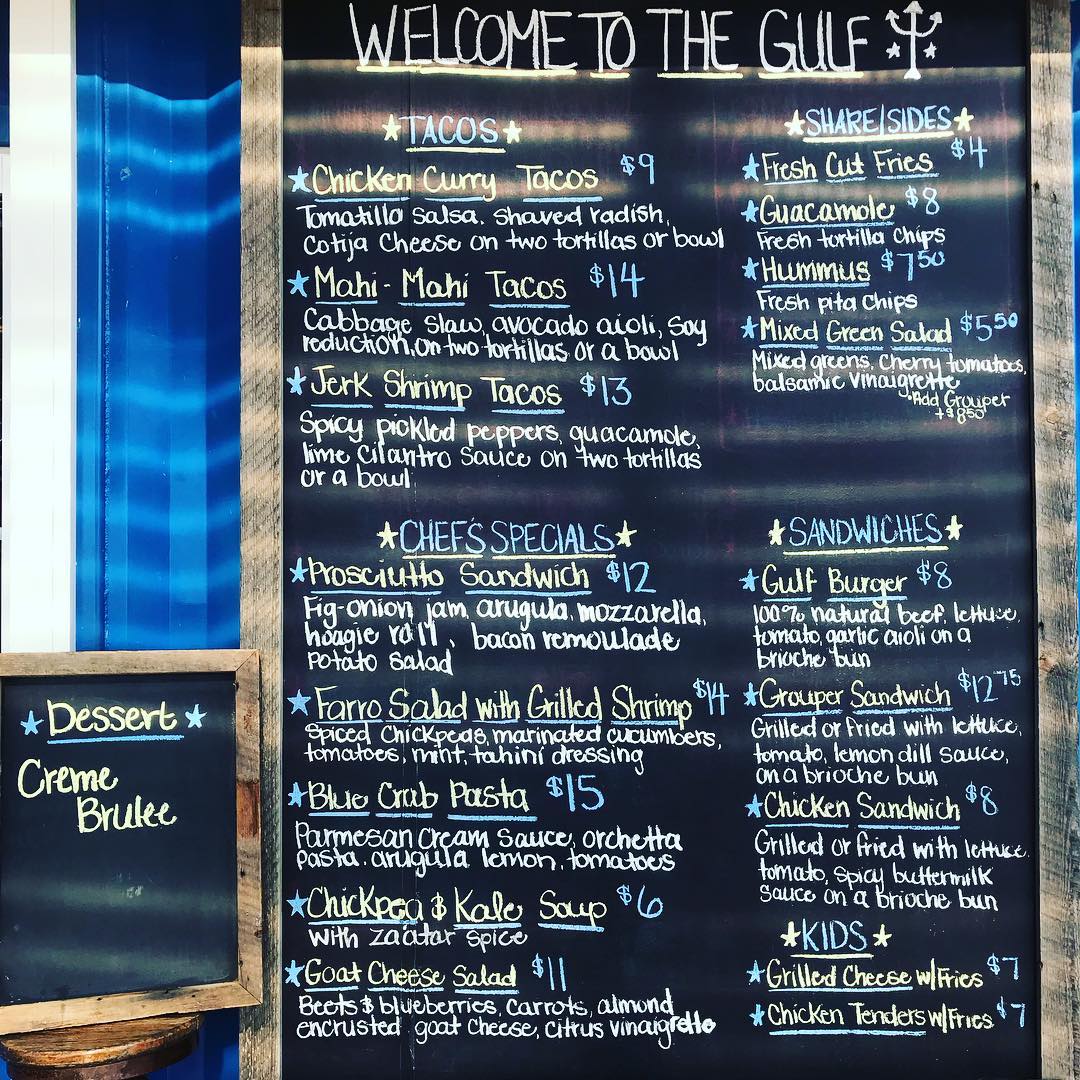 WELCOME TO THE GULF
TACOS
Chicken Curry Tacos $9
Tomatillo salsa, shaved radish,
Cotija Cheese on two tortillas or bowl
Mahi-Mahi Tacos $14
Cabbage slaw, avocado aioli, soy
reduction, on two tortillas or a bowl
Jerk Shrimp Tacos $13
Spicy pickled peppers, guacamole,
lime cilantro sauce on two tortillas
or a bowl
SHARE/SIDES
Fresh Cut Fries $4
Guacamole $8
Fresh tortilla chips
Hummus $7.50
Fresh pita chips
Mixed Green Salad $5.50
Mixed greens, cherry tomatoes,
balsamic vinaigrette
*Add Grouper
+$8.50
CHEF'S SPECIALS
Prosciutto Sandwich $12
Fig-onion jam, arugula, mozzarella,
hoagie roll, bacon remoulade
potato salad
Farro Salad with Grilled Shrimp $14
Spiced chickpeas, marinated cucumbers,
tomatoes, mint, tahini dressing
Blue Crab Pasta $15
Parmesan cream sauce, orchetta
pasta, arugula lemon, tomatoes
Chickpea & Kale Soup $6
with zaatar spice
Goat Cheese Salad $11
Beets & blueberries, carrots, almond
encrusted goat cheese, citrus vinaigrette
SANDWICHES
Gulf Burger $8
100% natural beef, lettuce,
tomato, garlic aioli on a
brioche bun
Grouper Sandwich $12.75
Grilled or fried with lettuce,
tomato, lemon dill sauce,
on a brioche bun
Chicken Sandwich $8
Grilled or fried with lettuce,
tomato, spicy buttermilk
sauce on a brioche bun
KIDS
Grilled Cheese w/Fries $7
Chicken Tenders w/Fries $7
Dessert
Creme
Brulee